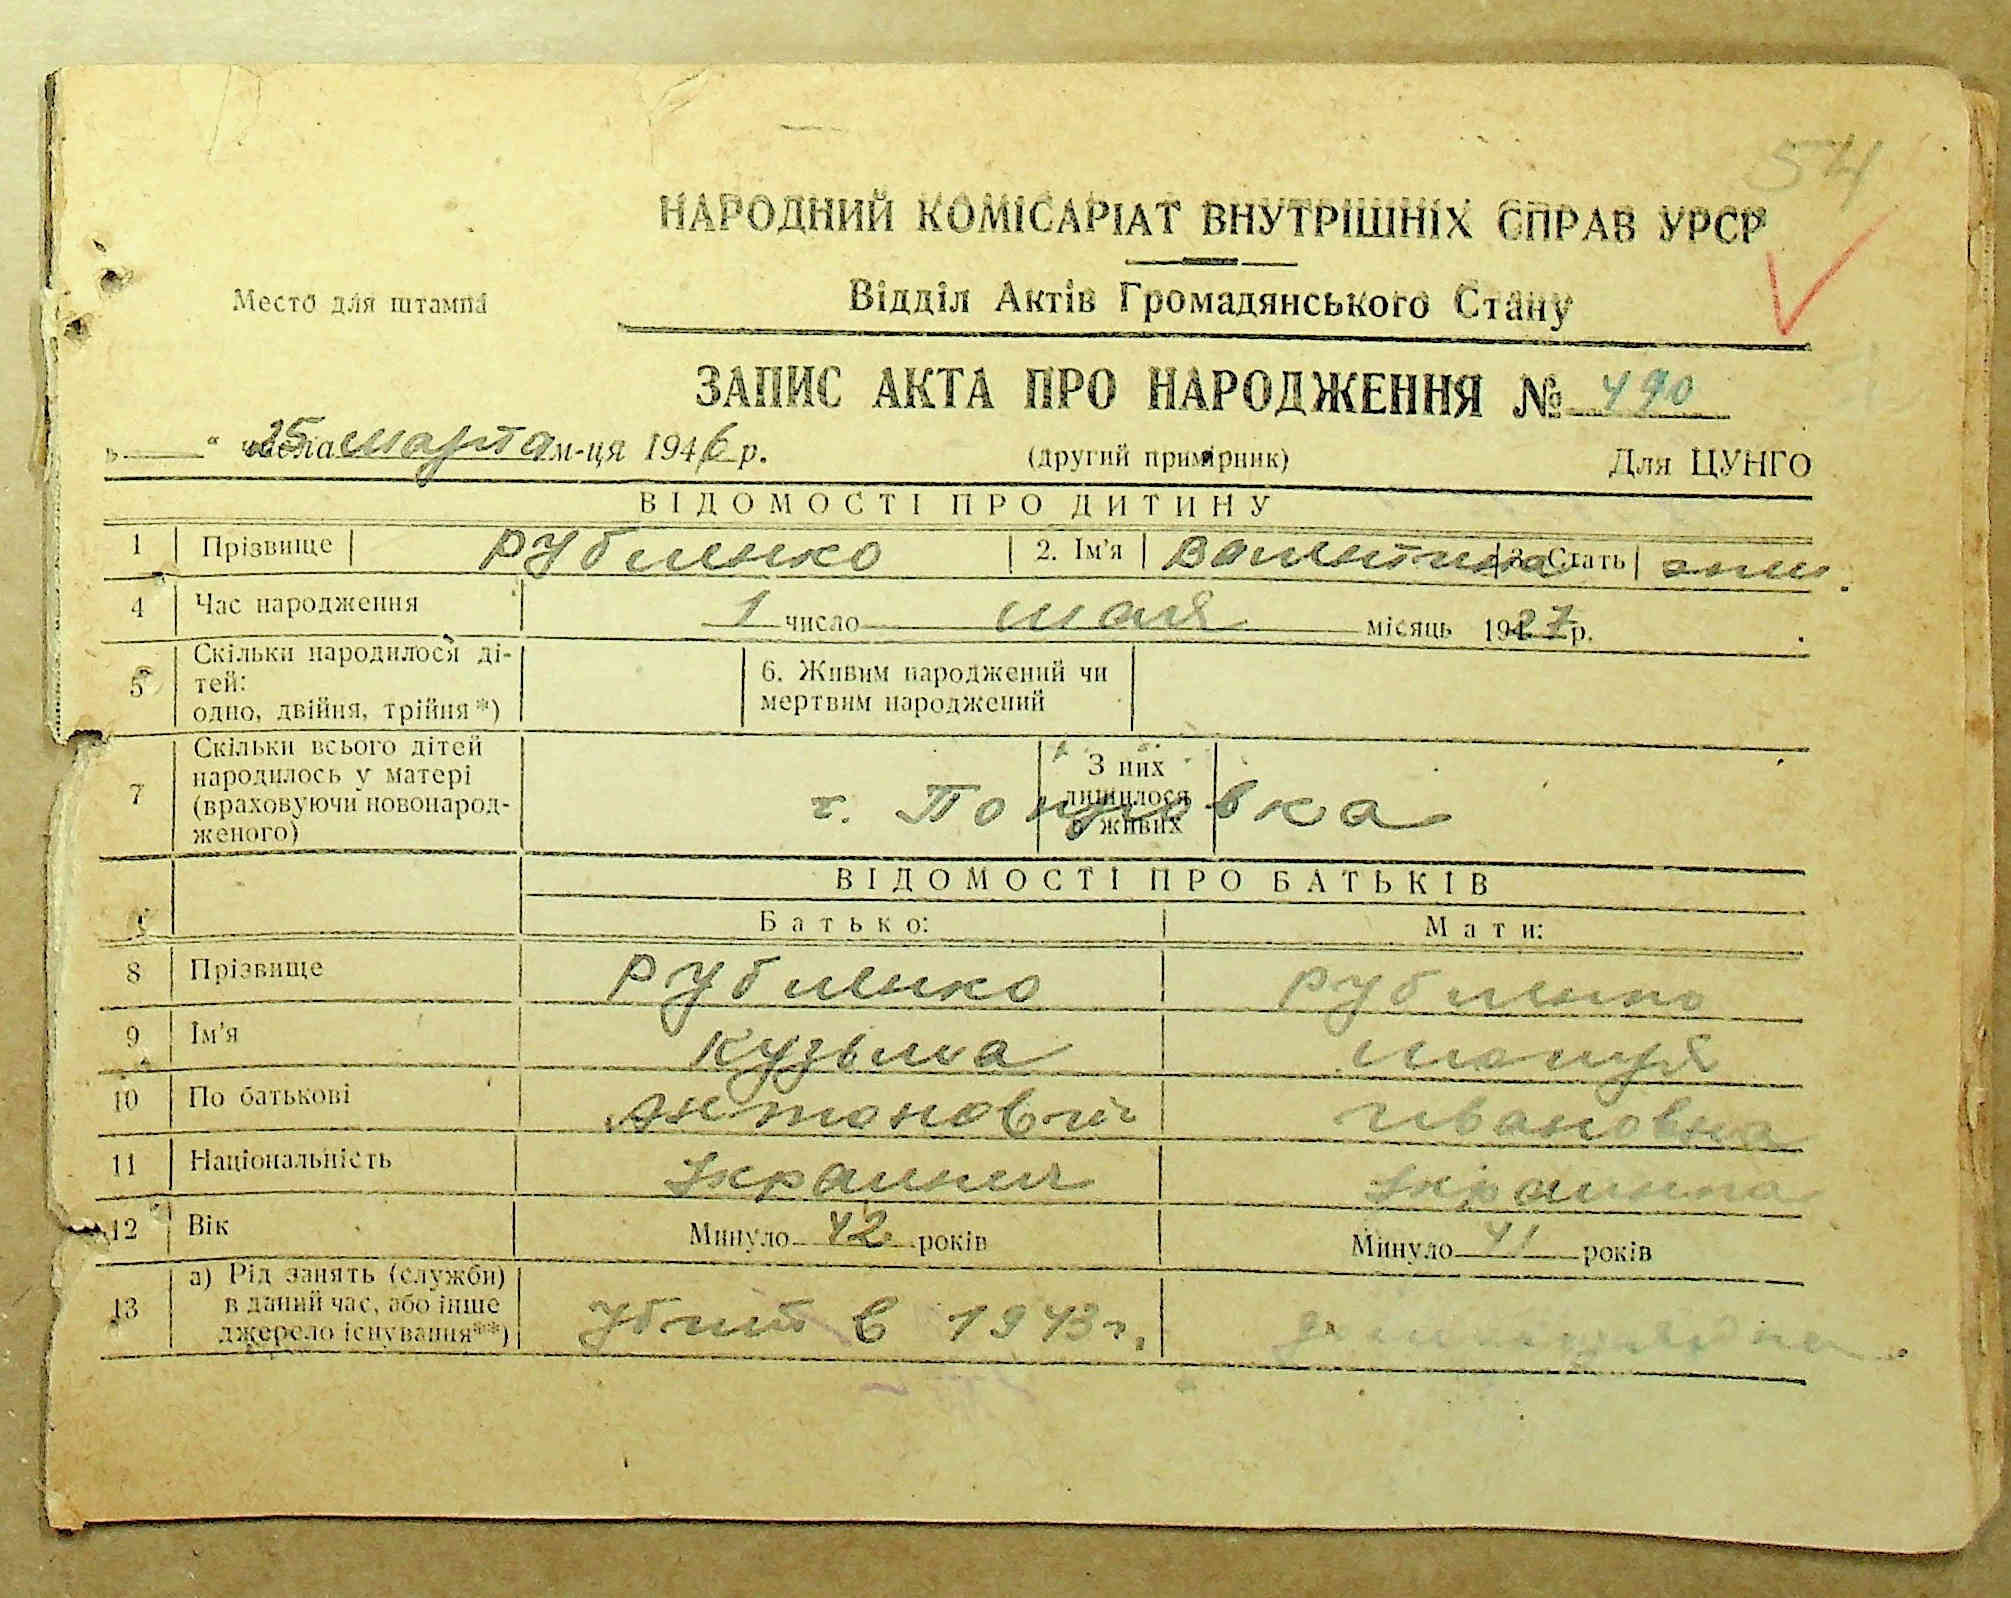 54
НАРОДНИЙ КОМІСАРІАТ ВНУТРІШНІХ СПРАВ УРСР
Место для штампа
Відділ Актів Громадянського Стану
ЗАПИС АКТА ПРО НАРОДЖЕННЯ № 490
„ “ числа 25 марта м-ця 1946 р. (другий примірник) Для ЦУНГО
ВІДОМОСТІ ПРО ДИТИНУ
1 Прізвище Рубленко 2. Ім'я Валентина 3. Стать жен.
4 Час народження 1 число мая місяць 1927 р.
5 Скільки народилося ді-
тей:
одно, двійня, трійня*)
6. Живим народжений чи
мертвим народжений
7 Скільки всього дітей
народилось у матері
(враховуючи новонарод-
женого)
З них
лишилося
в живих
ВІДОМОСТІ ПРО БАТЬКІВ
Батько: Мати:
8 Прізвище Рубленко Рубленко
9 Ім'я Кузьма
10 По батькові Антонович Ивановна
11 Національність Украинец Украинка
12 Вік Минуло 42 років Минуло 41 років
13 а) Рід занять (служби)
в даний час, або інше
джерело існування**)
Убит в 1943 г.